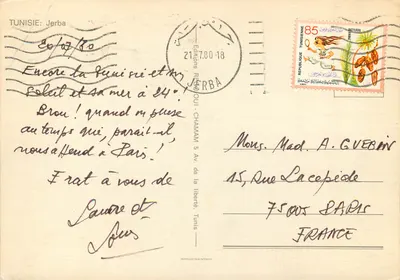 TUNISIE: Jerba
20/07/80
Encore la Tunisie et son
Soleil et sa mer à 24°.
Brou! quand on pense
au temps qui, paraît-il,
nous attend à Paris!
Frat à vous de
Louis
21.7.80-18
JERBA
CHAMAM 5 Av. de la liberté, Tunis
85
REPUBLIQUE TUNISIENNE
Mons. Mad. A. GUERIN
15, Rue Lacepède
75005 PARIS
FRANCE